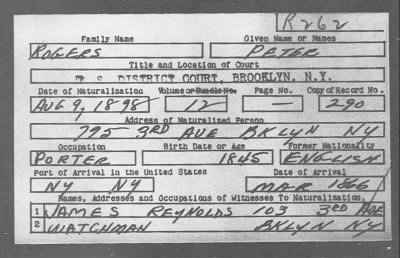 R262
Family Name Given Name or Names
ROGERS PETER
Title and Location of Court
U. S. DISTRICT COURT, BROOKLYN, N.Y.
Date of Naturalization Volume or Bundle No. Page No. Copy of Record No.
AUG 9, 1898 12 — 290
Address of Naturalized Person
795 3RD AVE BKLYN NY
Occupation Birth Date or Age Former Nationality
PORTER 1845 ENGLISH
Port of Arrival in the United States Date of Arrival
NY NY MAR 1866
Names, Addresses and Occupations of Witnesses To Naturalization
1 JAMES REYNOLDS 103 3RD AVE
2 WATCHMAN BKLYN NY